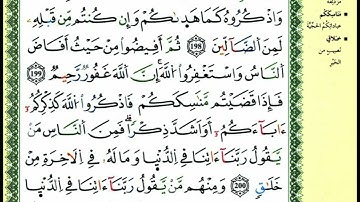 وَاذْكُرُوهُ كَمَا هَدَىٰكُمْ وَإِن كُنتُم مِّن قَبْلِهِۦ
لَمِنَ الضَّآلِّينَ 198 ثُمَّ أَفِيضُوا مِنْ حَيْثُ أَفَاضَ
النَّاسُ وَاسْتَغْفِرُوا اللَّهَ إِنَّ اللَّهَ غَفُورٌ رَّحِيمٌ 199
فَإِذَا قَضَيْتُم مَّنَٰسِكَكُمْ فَاذْكُرُوا اللَّهَ كَذِكْرِكُمْ
ءَابَآءَكُمْ أَوْ أَشَدَّ ذِكْرًا فَمِنَ النَّاسِ مَن
يَقُولُ رَبَّنَآ ءَاتِنَا فِي الدُّنْيَا وَمَا لَهُۥ فِي الْآخِرَةِ مِنْ
خَلَٰقٍ 200 وَمِنْهُم مَّن يَقُولُ رَبَّنَآ ءَاتِنَا فِي الدُّنْيَا
مَنَاسِكَكُمْ
عباداتكم الحجيّة
خلاق
نصيب من
الخير